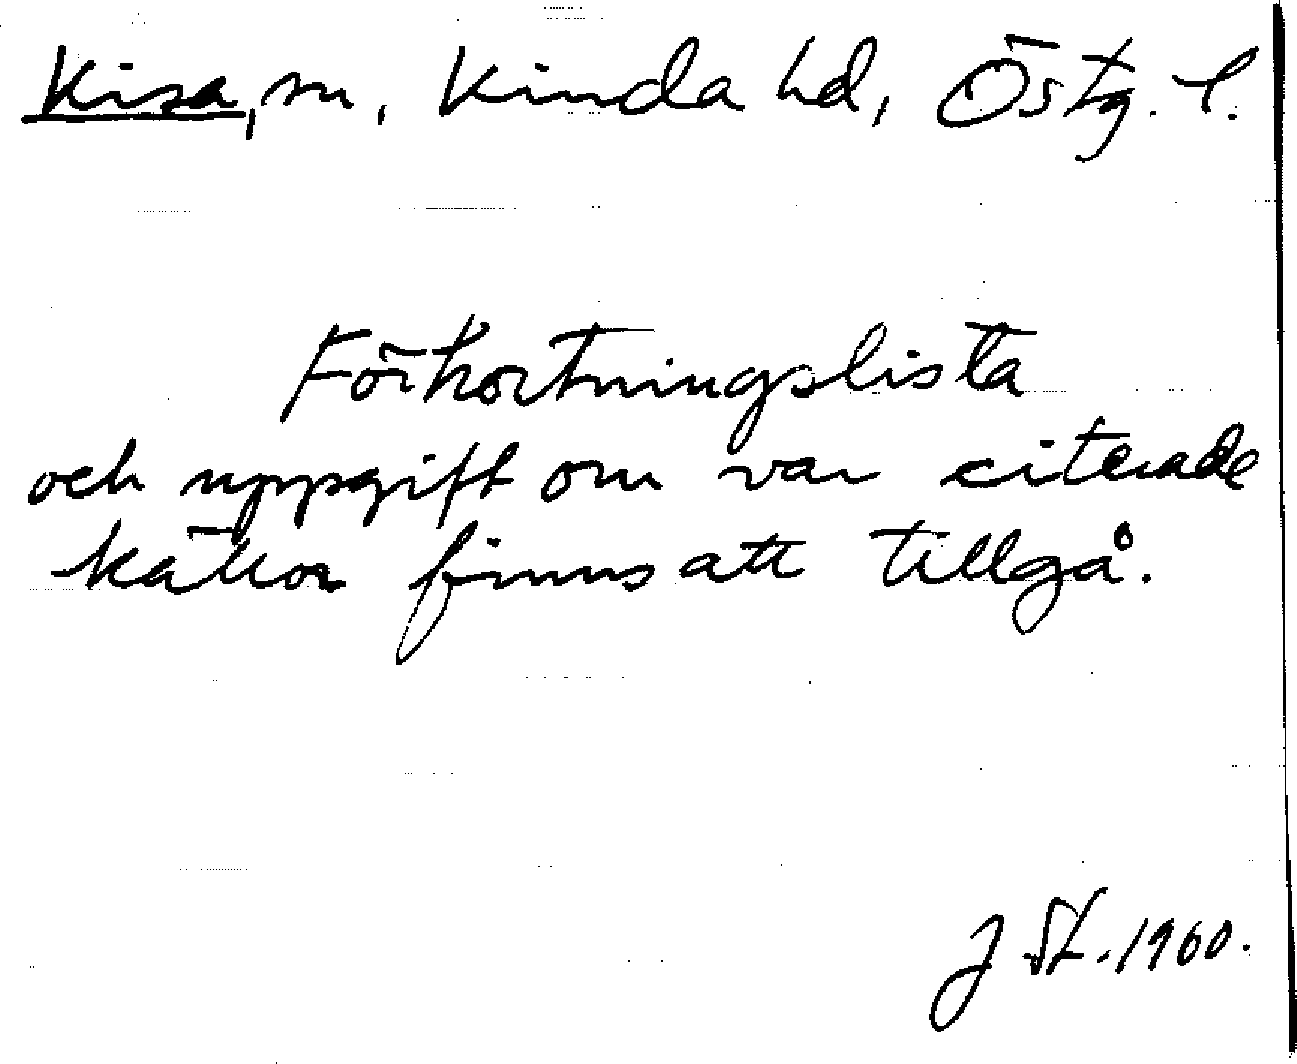 Kisa, sn, Kinda hd, Östg. l.
Förkortningslista
och uppgift om var citerade
källor finns att tillgå.
J St. 1960.